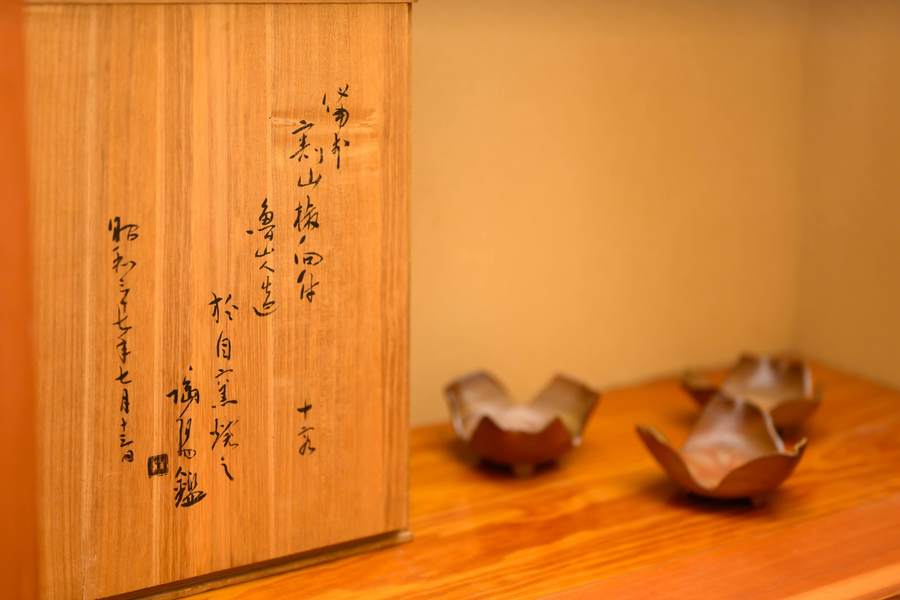 備前
割山椒向付 十客
魯山人造
於自窯焼之
陶陽鑑
昭和三十七年七月十三日